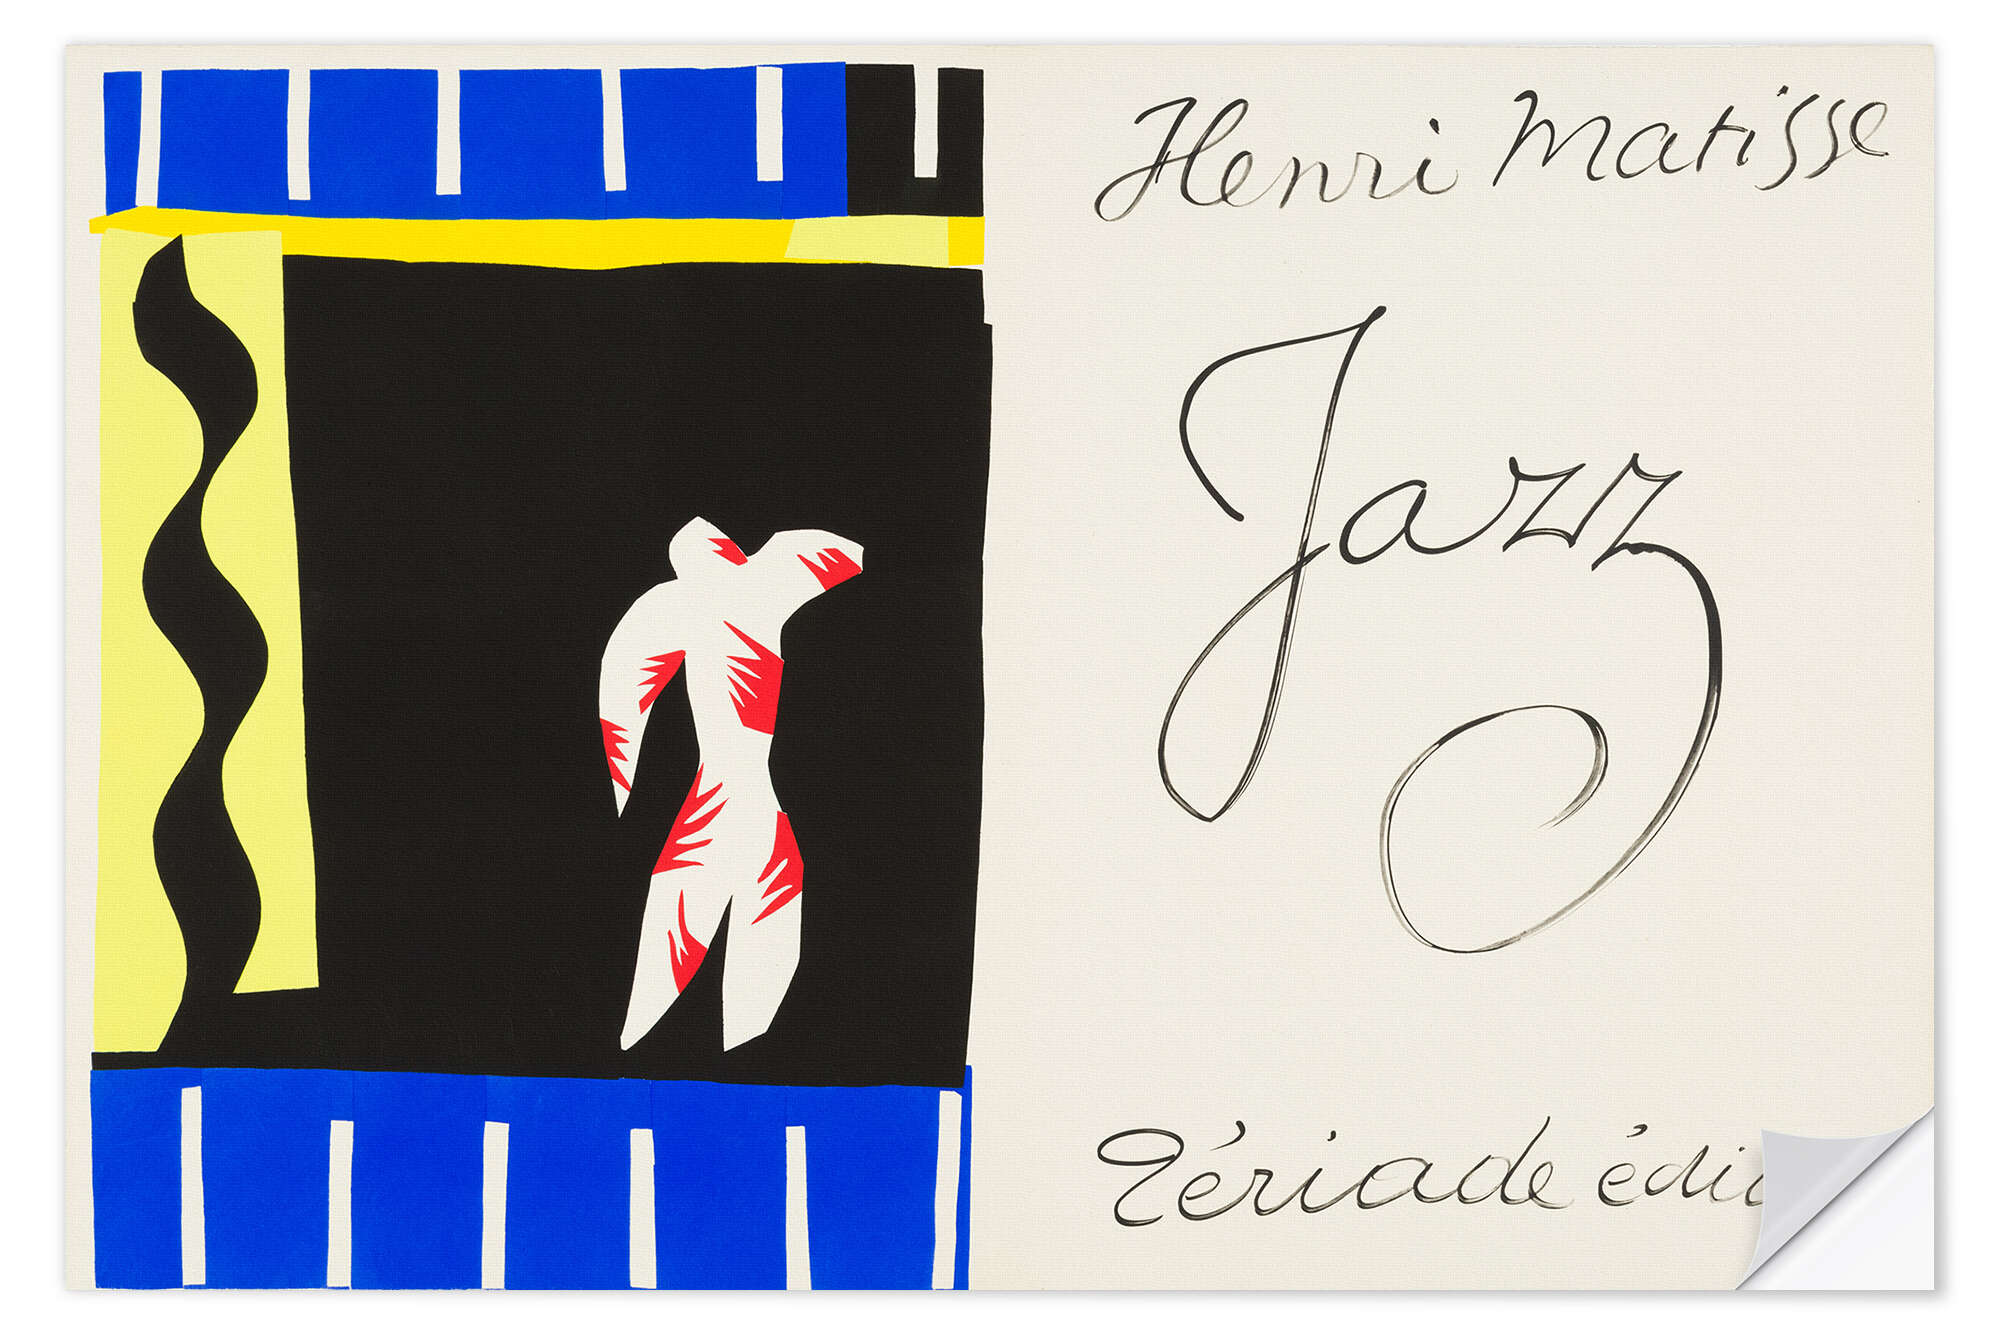 Henri Matisse
Jazz
Tériade